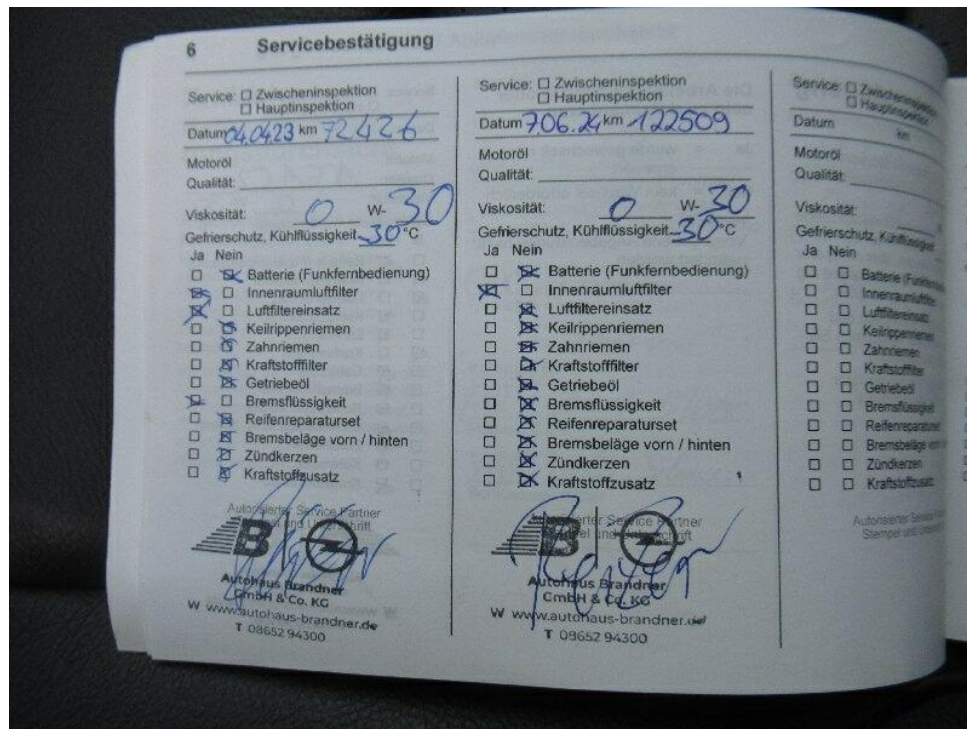 6 Servicebestätigung
Service: Zwischeninspektion
Hauptinspektion
Datum 04.04.23 km 72426
Motoröl
Qualität:
Viskosität: 0 W- 30
Gefrierschutz, Kühlflüssigkeit -30 °C
Ja Nein
Batterie (Funkfernbedienung)
Innenraumluftfilter
Luftfiltereinsatz
Keilrippenriemen
Zahnriemen
Kraftstofffilter
Getriebeöl
Bremsflüssigkeit
Reifenreparaturset
Bremsbeläge vorn / hinten
Zündkerzen
Kraftstoffzusatz
Autorisierter Service Partner
Stempel und Unterschrift
B
Autohaus Brandner
GmbH & Co. KG
W www.autohaus-brandner.de
T 08652 94300
Service: Zwischeninspektion
Hauptinspektion
Datum 7.06.24 km 122509
Motoröl
Qualität:
Viskosität: 0 W- 30
Gefrierschutz, Kühlflüssigkeit -30 °C
Ja Nein
Batterie (Funkfernbedienung)
Innenraumluftfilter
Luftfiltereinsatz
Keilrippenriemen
Zahnriemen
Kraftstofffilter
Getriebeöl
Bremsflüssigkeit
Reifenreparaturset
Bremsbeläge vorn / hinten
Zündkerzen
Kraftstoffzusatz
Autorisierter Service Partner
Stempel und Unterschrift
B
Autohaus Brandner
GmbH & Co. KG
W www.autohaus-brandner.de
T 08652 94300
Service: Zwischeninspektion
Hauptinspektion
Datum km
Motoröl
Qualität:
Viskosität:
Gefrierschutz, Kühlflüssigkeit
Ja Nein
Batterie (Funkfernb
Innenraumluftfilter
Luftfiltereinsatz
Keilrippenriemen
Zahnriemen
Kraftstofffilter
Getriebeöl
Bremsflüssigkeit
Reifenreparaturset
Bremsbeläge vorn
Zündkerzen
Kraftstoffzusatz
Autorisierter Service
Stempel und